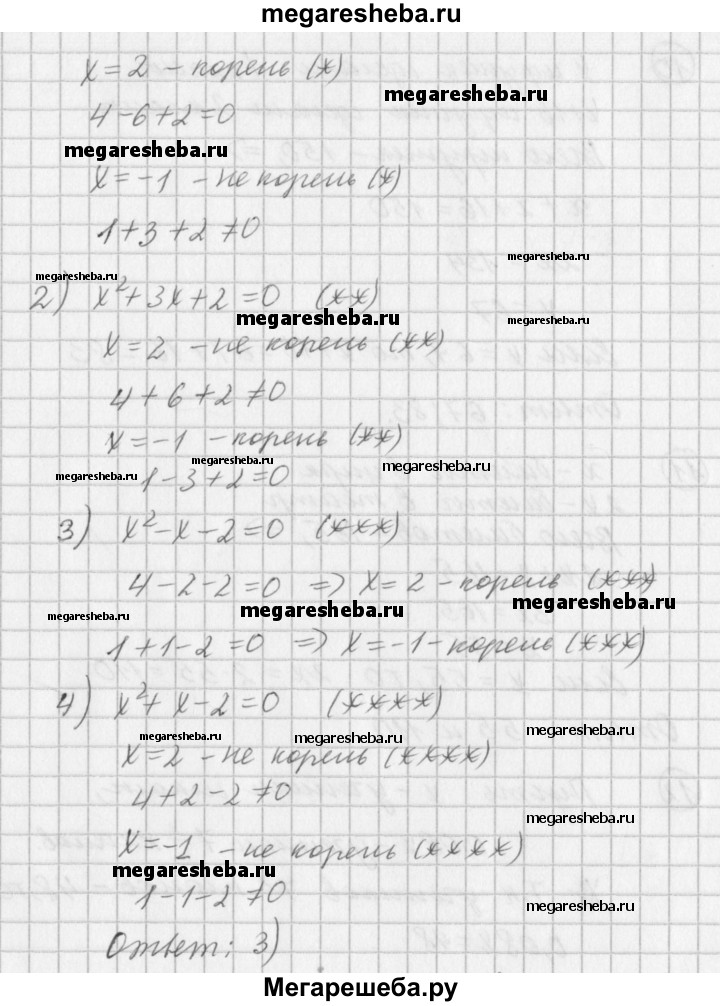 megaresheba.ru
x = 2 – корень (*)
megaresheba.ru
4 – 6 + 2 = 0
megaresheba.ru
x = –1 – не корень (*)
1 + 3 + 2 ≠ 0
megaresheba.ru
megaresheba.ru
2) x² + 3x + 2 = 0 (**)
megaresheba.ru
megaresheba.ru
x = 2 – не корень (**)
4 + 6 + 2 ≠ 0
x = –1 – корень (**)
megaresheba.ru
megaresheba.ru
megaresheba.ru
1 – 3 + 2 = 0
3) x² – x – 2 = 0 (***)
4 – 2 – 2 = 0 => x = 2 – корень (***)
megaresheba.ru
megaresheba.ru
megaresheba.ru
1 + 1 – 2 = 0 => x = –1 – корень (***)
4) x² + x – 2 = 0 (****)
megaresheba.ru
x = 2 – не корень (****)
4 + 2 – 2 ≠ 0
megaresheba.ru
x = –1 – не корень (****)
megaresheba.ru
1 – 1 – 2 ≠ 0
megaresheba.ru
Ответ: 3)
Мегарешеба.ру